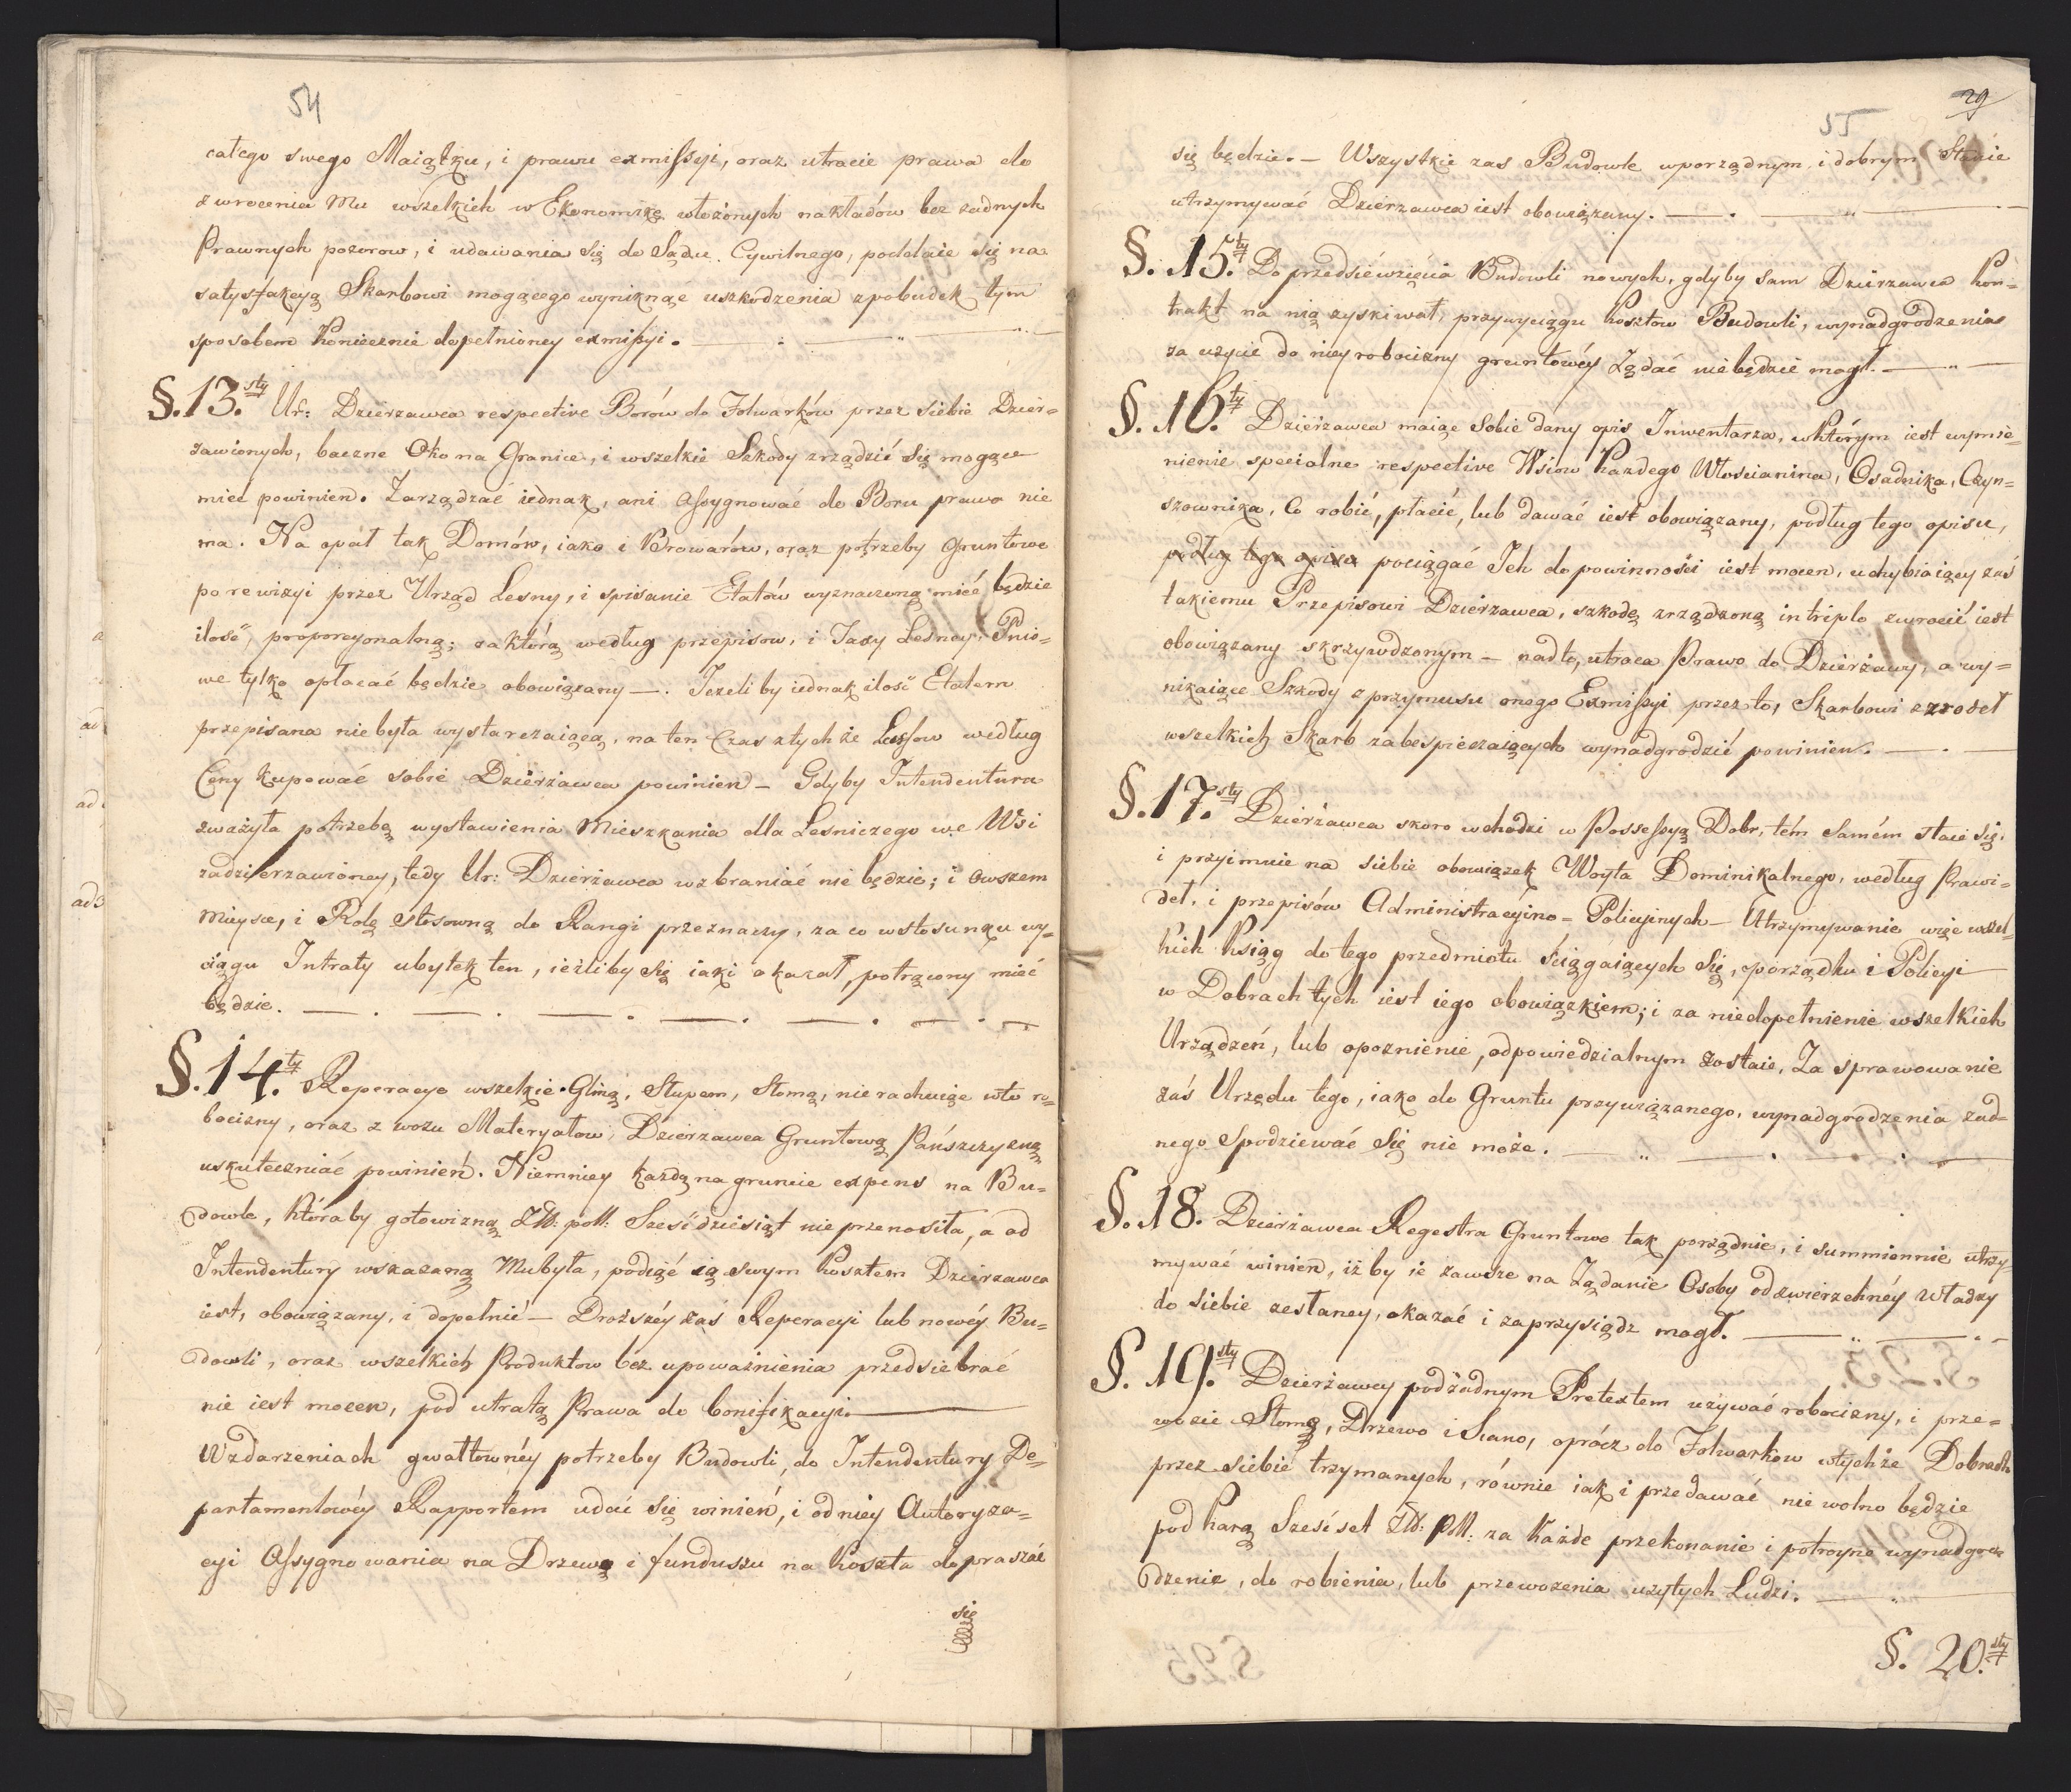 54
całego swego Maiątku, i prawu exmissyi, oraz utracie prawa do
zwrocenia Mu wszelkich w Ekonomikę włożonych nakładów bez żadnych
Prawnych pozorow, i udawania się do Sądu Cywilnego, poddaie się na
satysfakcyą Skarbowi mogącego wyniknąć uszkodzenia zpobudek tym
sposobem koniecznie dopełnioney exmissyi.
§. 13.sty Ur: Dzierzawca respective Borów do Folwarków przez siebie Dzier=
zawionych, baczne Oko na Granice, i wszelkie Szkody zrządzić się mogące
mieć powinien. Zarządzać iednak, ani Assygnować do Boru prawa nie
ma. Na opał tak Domów, iako i Browarów, oraz potrzeby Gruntowe
po rewizyi przez Urząd Lesny, i spisanie Etatów wyznaczoną mieć będzie
ilość, proporcyonalną; zaktórą według przepisow, i Taxy Lesney, Pnio=
we tylko opłacać będzie obowiązany —. Jeżeliby iednak ilość Etatem
przepisana niebyła wystarczaiącą, na ten Czas ztychże Lassow według
Ceny kupować sobie Dzierżawca powinien — Gdyby Intendentura
zważyła potrzebę wystawienia Mieszkania dla Lesniczego we Wsi
zadzierzawioney, tedy Ur: Dzierżawca wzbraniać nie będzie; i owszem
Mieysce, i Rolę stosowną do Rangi przeznaczy, za co wstosunku wy=
ciągu Intraty ubytek ten, ieżliby się iaki okazał, potrącony mieć
będzie.
§. 14.ty Reperacye wszelkie Gliną, Słupem, Słomą, nie rachuiąc wto ro=
bocizny, oraz zwozu Materyałow, Dzierzawca Gruntową Pańszczyzną
uskuteczniać powinień. Niemniey każdą na gruncie expens na Bu=
dowle, któraby gotowizną Złł: poll: Sześćdziesiąt nie przenosiła, a od
Intendentury wskazaną Mubyła, podiąć ią swym kosztem Dzierzawca
iest, obowiązany, i dopełnić — Droższéy zaś Reperacyi lub nowéy Bu=
dowli, oraz wszelkich Produktow bez upoważnienia przedsiebrać
nie iest mocen, pod utratą Prawa do bonifikacyi.
Wzdarzeniach gwałtownéy potrzeby Budowli, do Intendentury De=
partamentowéy Rapportem udać się winień, i odniey Autoryza=
cyi Assygnowania na Drzewo i funduszu na koszta dopraszać
się
29
55
się będzie. — Wszystkie zas Budowle wporządnym, i dobrym Stanie
utrzymywać Dzierzawca iest obowiązany.
§. 15.ty Do przedsiéwzięcia Budowli nowych, gdyby sam Dzierzawca kon=
trakt na nią zyskiwał, przywyciągu kosztow Budowli, wynadgrodzenia
za użycie do niey robocizny gruntowéy Żądać niebędzie mogł.
§. 16.ty Dzierżawca maiąc Sobie dany opis Inwentarza, wktórym iest wymie=
nienie specialne respective Wsiow kazdego Włoscianina, Osadnika, Czyn=
szownika, Co robić, płacić, lub dawać iest obowiązany, podług tego opisu,
podług tego opisu pociągać Jch do powinności iest mocen, uchybiaiący zaś
takiemu Przepisowi Dzierzawca, szkodę zrządzoną in triplo zwrocić iest
obowiązany skrzywdzonym — nadto, utraca Prawo do Dzierżawy, a wy=
nikaiące Szkody z przymusu onego Exmissyi przez to, Skarbowi zzrodeł
wszelkich Skarb zabespieczaiących wynadgrodzić powinien.
§. 17.sty Dzierżawca skoro wchodzi w Possessyą Dobr, tém samém staie się,
i przyimuie na siebie obowiązek Woyta Dominikalnego, według Prawi=
deł, i przepisów Administracyino=Policyinych — Utrzymywanie więc wszel=
kich ksiąg do tego przedmiotu ściągaiących się, porządku i Policyi
w Dobrach tych iest iego obowiązkiem; i za niedopełnienie wszelkich
Urządzeń, lub opoznienie, odpowiedzialnym zostaie, Za sprawowanie
zaś Urzędu tego, iako do Gruntu przywiązanego, wynadgrodzenia żad=
nego spodziewać się nie może.
§. 18. Dzierżawca Regestra Gruntowe tak porządnie, i summiennie utrzy=
mywać winien, iż by ie zawsze na Żądanie Osoby odzwierzchnéy Władzy
do siebie zesłaney, okazać i zaprzysiądz mogł.
§. 19.sty Dzierżawcy pod żadnym Pretextem używać robocizny, i prze=
wozie Słomę, Drzewo i Siano, oprócz do Folwarkow wtychże Dobrach
przez siebie trzymanych, równie iak i przedawać nie wolno będzie
pod karą Sześćset Złł: Poll. za każde przekonanie i potroyne wynadgro=
dzenie, do robienia, lub przewozenia użytych Ludzi.
§. 20.sty